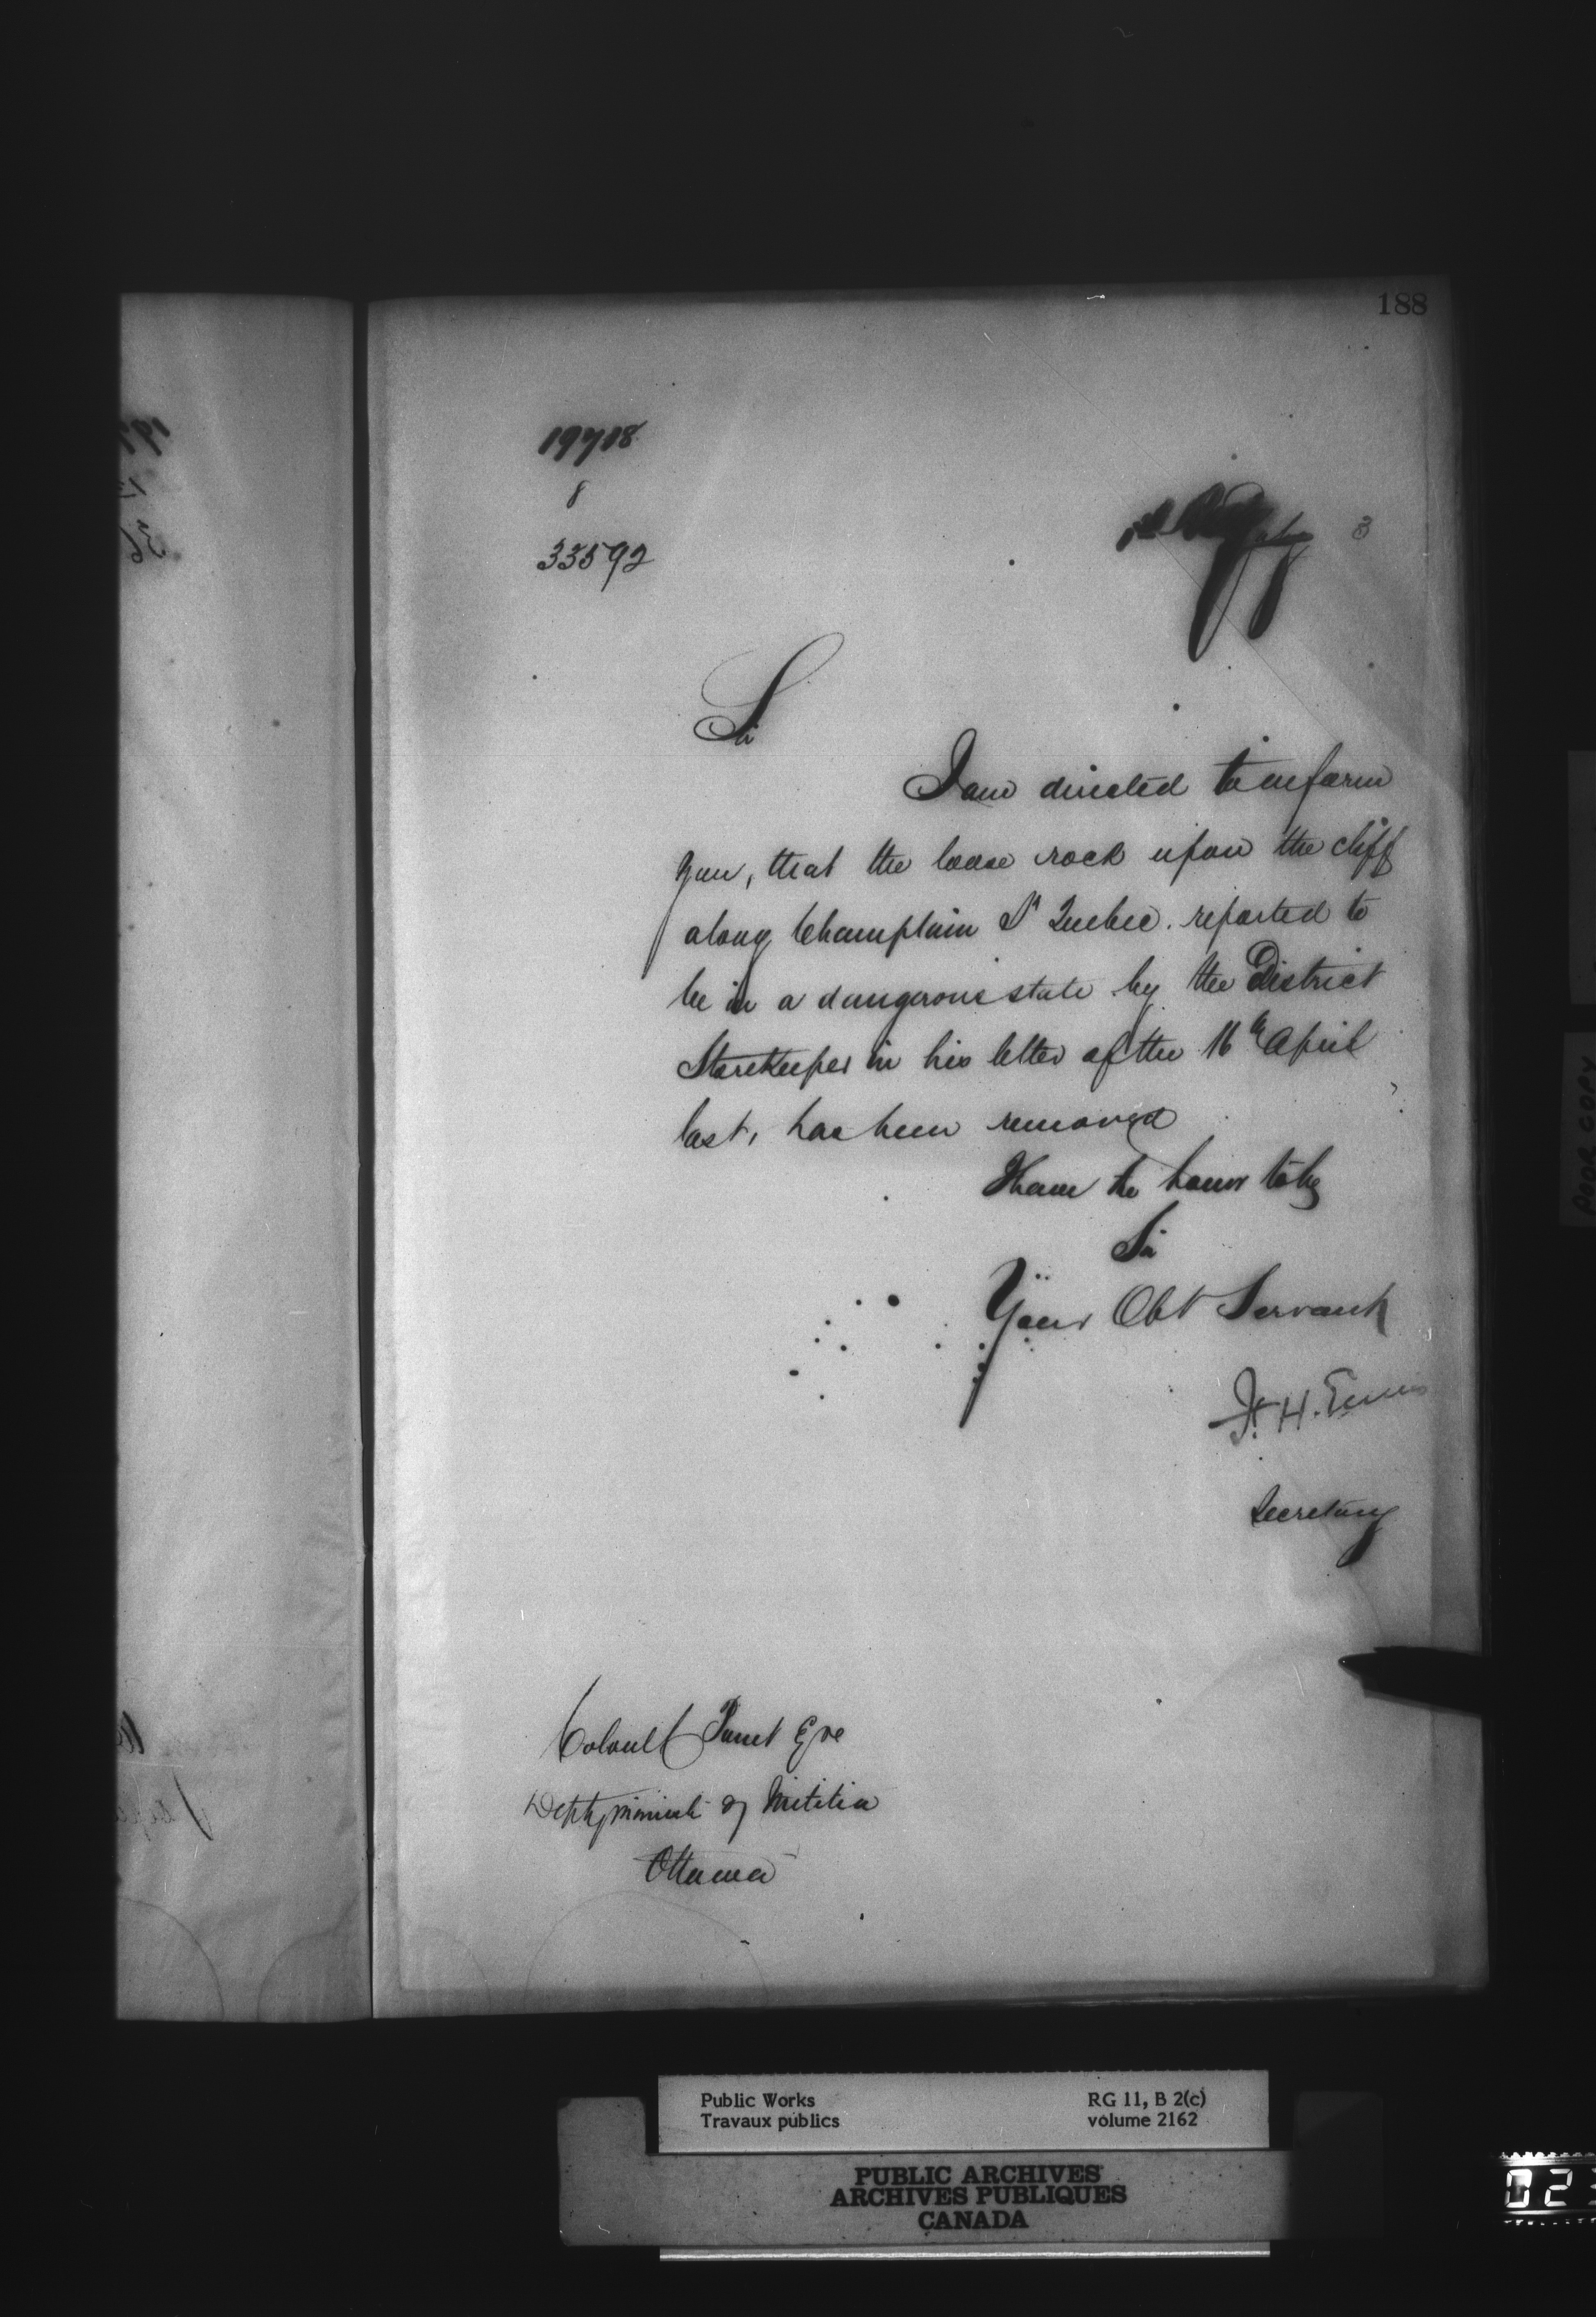 188
19718
8
33592
3
Sir
I am directed to inform
you, that the loose rock upon the cliff
along Champlain St Quebec. reported to
be in a dangerous state by the District
Storekeeper in his letter of the 16th April
last, has been removed
I have the honor to be
Sir
Your Obt Servant
F. H. Ennis
Secretary
Colonel Panet Esqre
Depty Minister of Militia
Ottawa
POOR COPY
Public Works RG 11, B 2(c)
Travaux publics volume 2162
PUBLIC ARCHIVES
ARCHIVES PUBLIQUES
CANADA